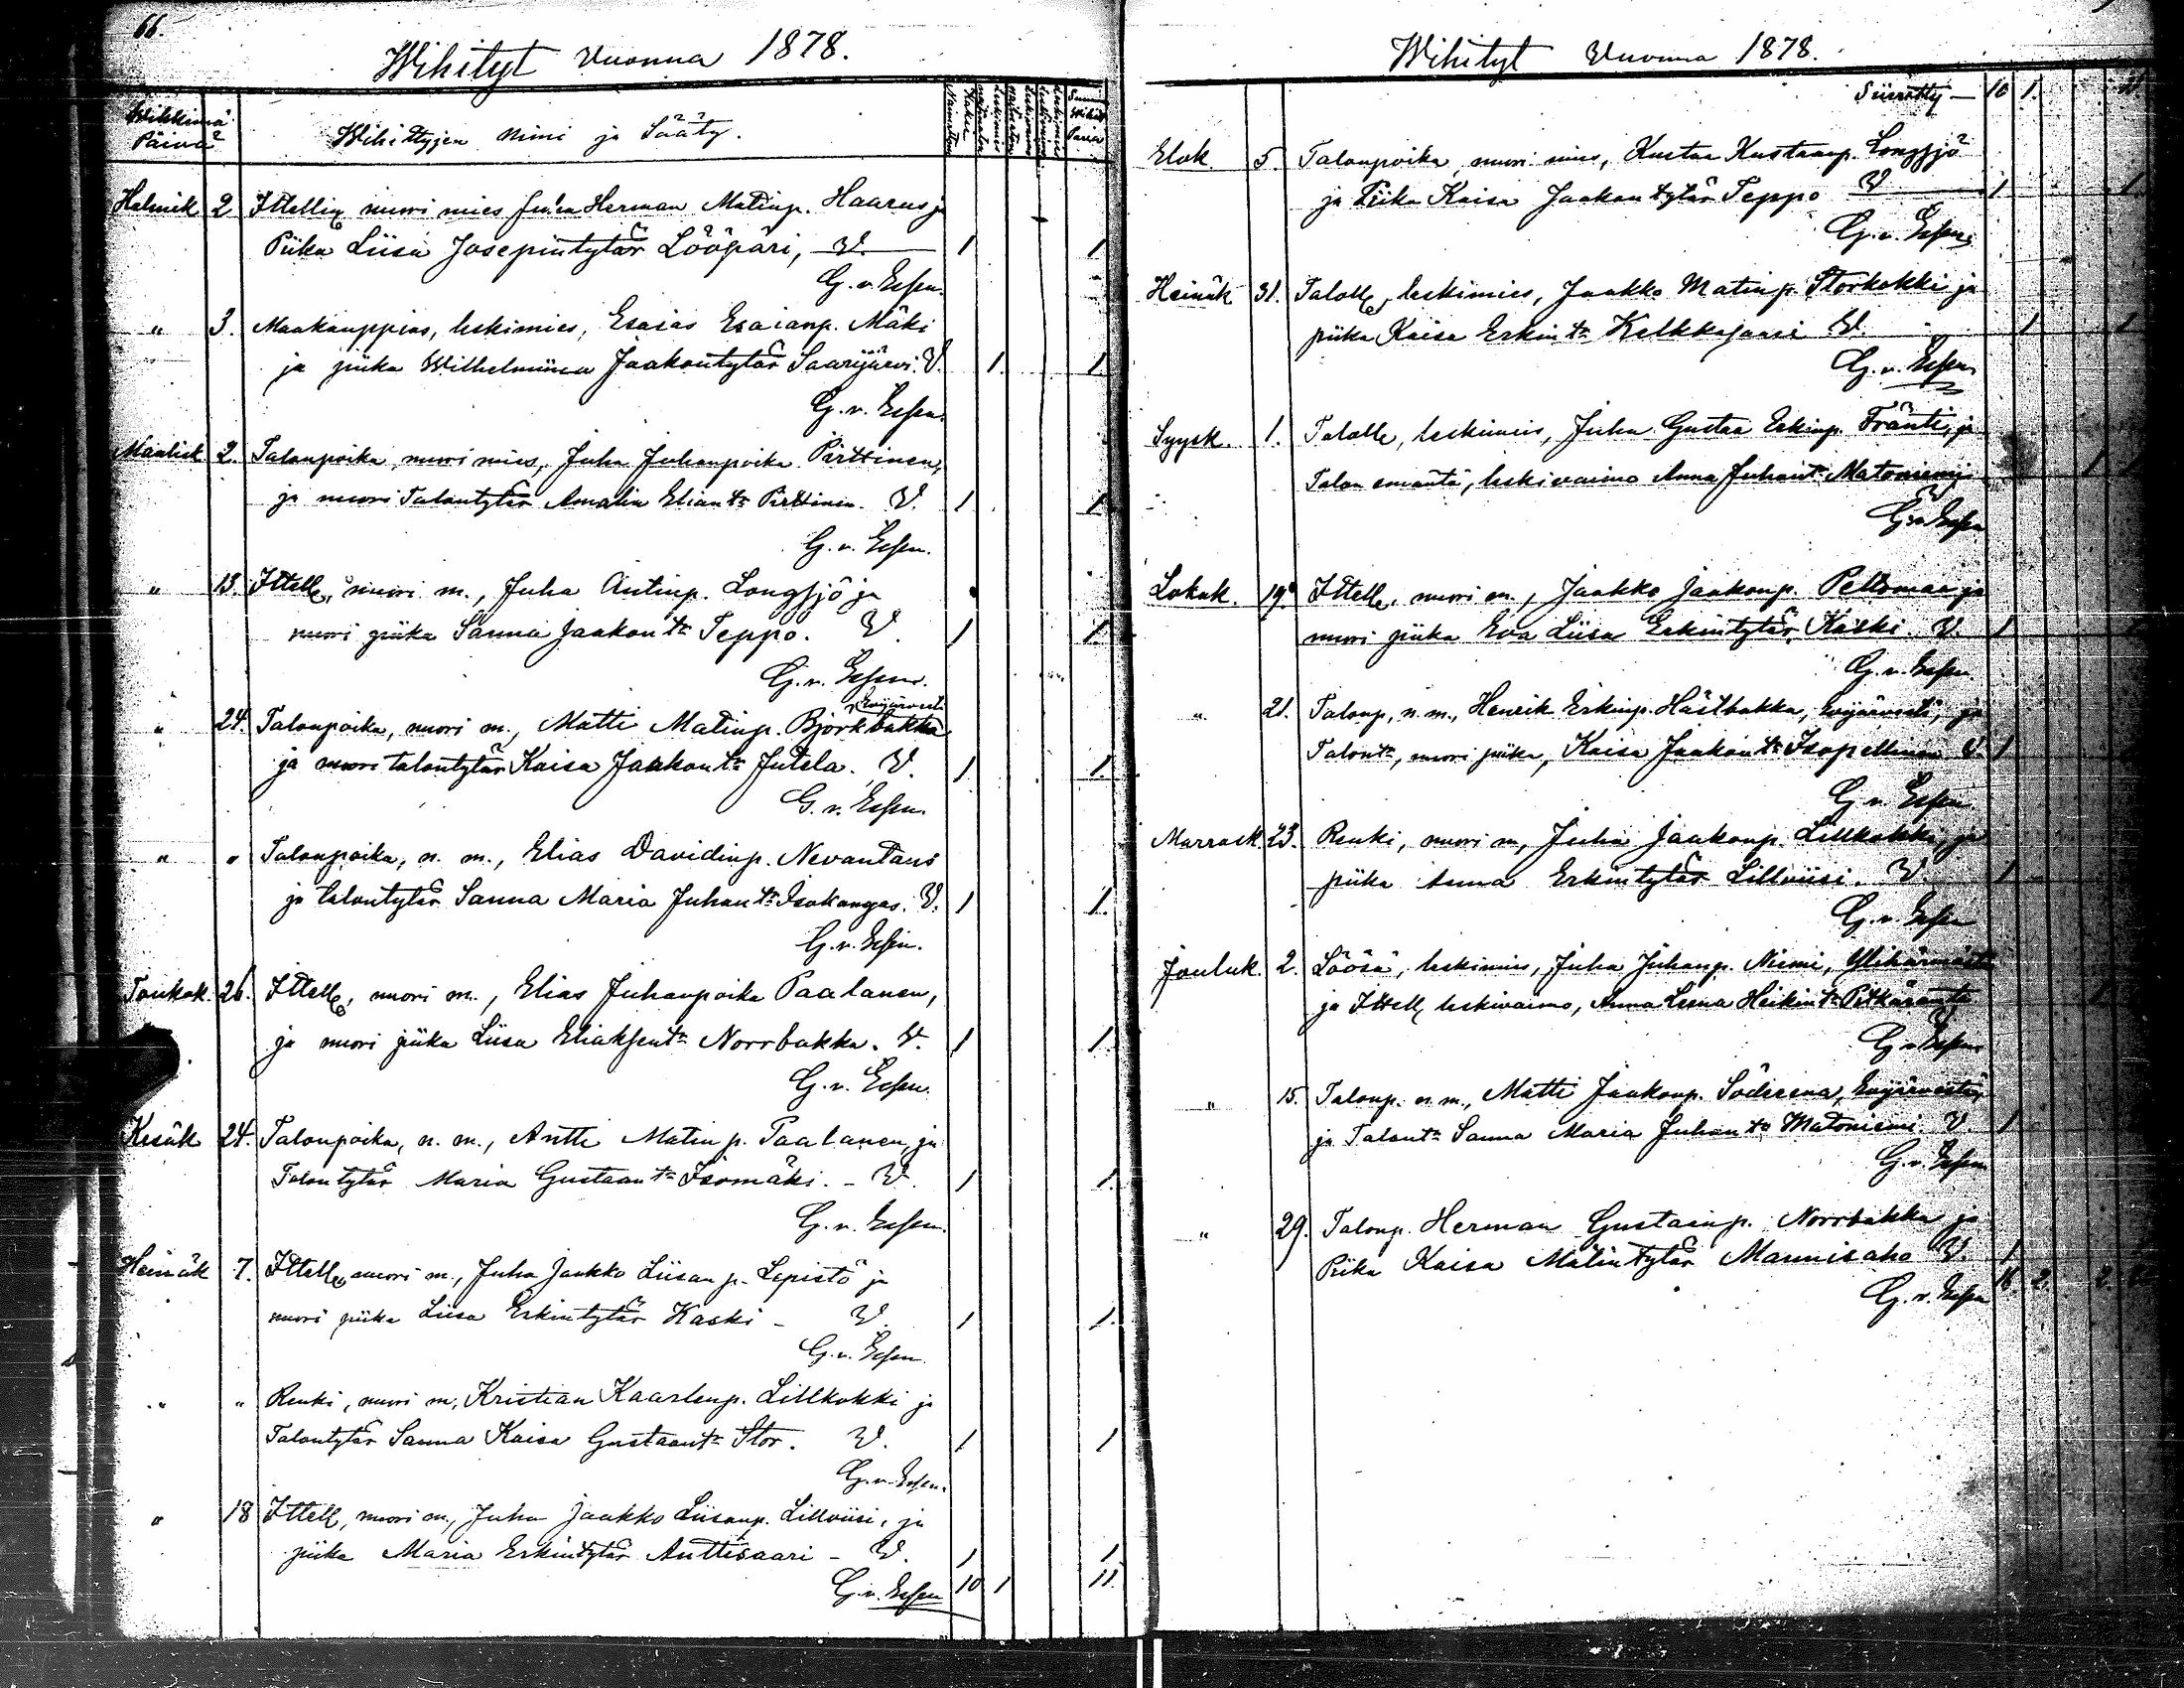 66.
Wihityt Vuonna 1878.
Wihkimä Päivä
Wihittyjen nimi ja Sääty.
Helmik 2 Ittellig nuori mies Juha Herman Matinp. Haarus ja
Piika Liisa Josepintytär Lööpäri, W. 1 1
G. v. Essen.
" 3. Maakauppias, leskimies, Esaias Esaianp. Mäki
ja piika Wilhelmiina Jaakontytär Saarijärvi. W. 1. 1.
G. v. Essen.
Maalisk 2. Talonpoika, nuori mies, Juha Juhanpoika Pirttinen,
ja nuori Talontytär Amalia Eliant:r Pirttinen. W. 1 1
G. v. Essen.
" 13. Ittell, nuori m., Juha Antinp. Longsjö ja
nuori piika Sanna Jaakont:r Teppo. W. 1 1
G. v. Essen.
Evijärveltä
" 24. Talonpoika, nuori m., Matti Matinp. Björkbakka
ja nuori talontytär Kaisa Jaakont:r Jutila. W. 1 1.
G. v. Essen.
" " Talonpoika, n. m., Elias Davidinp. Nevantaus
ja talontytär Sanna Maria Juhant:r Isokangas. W. 1 1.
G. v. Essen.
Toukok. 26. Ittell, nuori m., Elias Juhanpoika Paalanen,
ja nuori piika Liisa Eliaksent:r Norrbakka. W. 1 1.
G. v. Essen.
Kesäk 24. Talonpoika, n. m., Antti Matinp. Paalanen, ja
Talontytär Maria Gustaant:r Isomäki. - W. 1 1.
G. v. Essen.
Heinäk 7. Ittell, nuori m., Juha Jaakko Liisanp. Lepistö ja
nuori piika Liisa Erkintytär Kaski - W. 1 1.
G. v. Essen.
" " Renki, nuori m., Kristian Kaarlenp. Lillkokki ja
Talontytär Sanna Kaisa Gustaant:r Stor. W. 1 1
G. v. Essen.
" 18 Ittell, nuori m., Juha Jaakko Liisanp. Lillviisi, ja
piika Maria Erkintytär Anttisaari - W. 1 1
G. v. Essen 10 1 11.
Wihityt Vuonna 1878.
Siirretty — 10 1. 11
Elok. 5. Talonpoika, nuori mies, Kustaa Kustaanp. Longsjö
ja Piika Kaisa Jaakontytär Teppo W. 1 1
G. v. Essen.
Heinäk 31. Talolle, leskimies, Jaakko Matinp. Storkokki ja
piika Kaisa Erkint:r Kelkkajansi W. 1 1
G. v. Essen
Syysk. 1. Talolle, leskimies, Juha Gustaa Erkinp. Fränti, ja
Talon emäntä, leskivaimo Anna Juhant:r Matoniemi 1 1
W.
G. v. Essen
Lokak. 19. Ittell, nuori m., Jaakko Jaakonp. Peltomaa ja
nuori piika Eva Liisa Erkintytär Kaski. W. 1 1
G. v. Essen
" 21. Talonp, n. m., Henrik Erkinp. Hästbakka, Evijärveltä, ja
Talont:r, nuori piika, Kaisa Jaakont:r Isopellinen W. 1
G. v. Essen
Marrask 23. Renki, nuori m, Juha Jaakonp. Lillkokki, ja
piika Anna Erkintytär Lillviisi. W. 1
G. v. Essen
Jouluk. 2. Löösä, leskimies, Juha Juhanp. Niemi, Ylihärmästä
ja Ittell, leskivaimo, Anna Leena Heikint:r Pitkäranta 1
W.
G. v. Essen
" 15. Talonp. n. m., Matti Jaakonp. Söderena, Evijärveltä,
ja Talont:r Sanna Maria Juhant:r Matoniemi. W. 1
G. v. Essen
" 29. Talonp. Herman Gustainp. Norrbakka ja
Piika Kaisa Matintytär Mannisaho W. 1
G. v. Essen 16 2. 2.